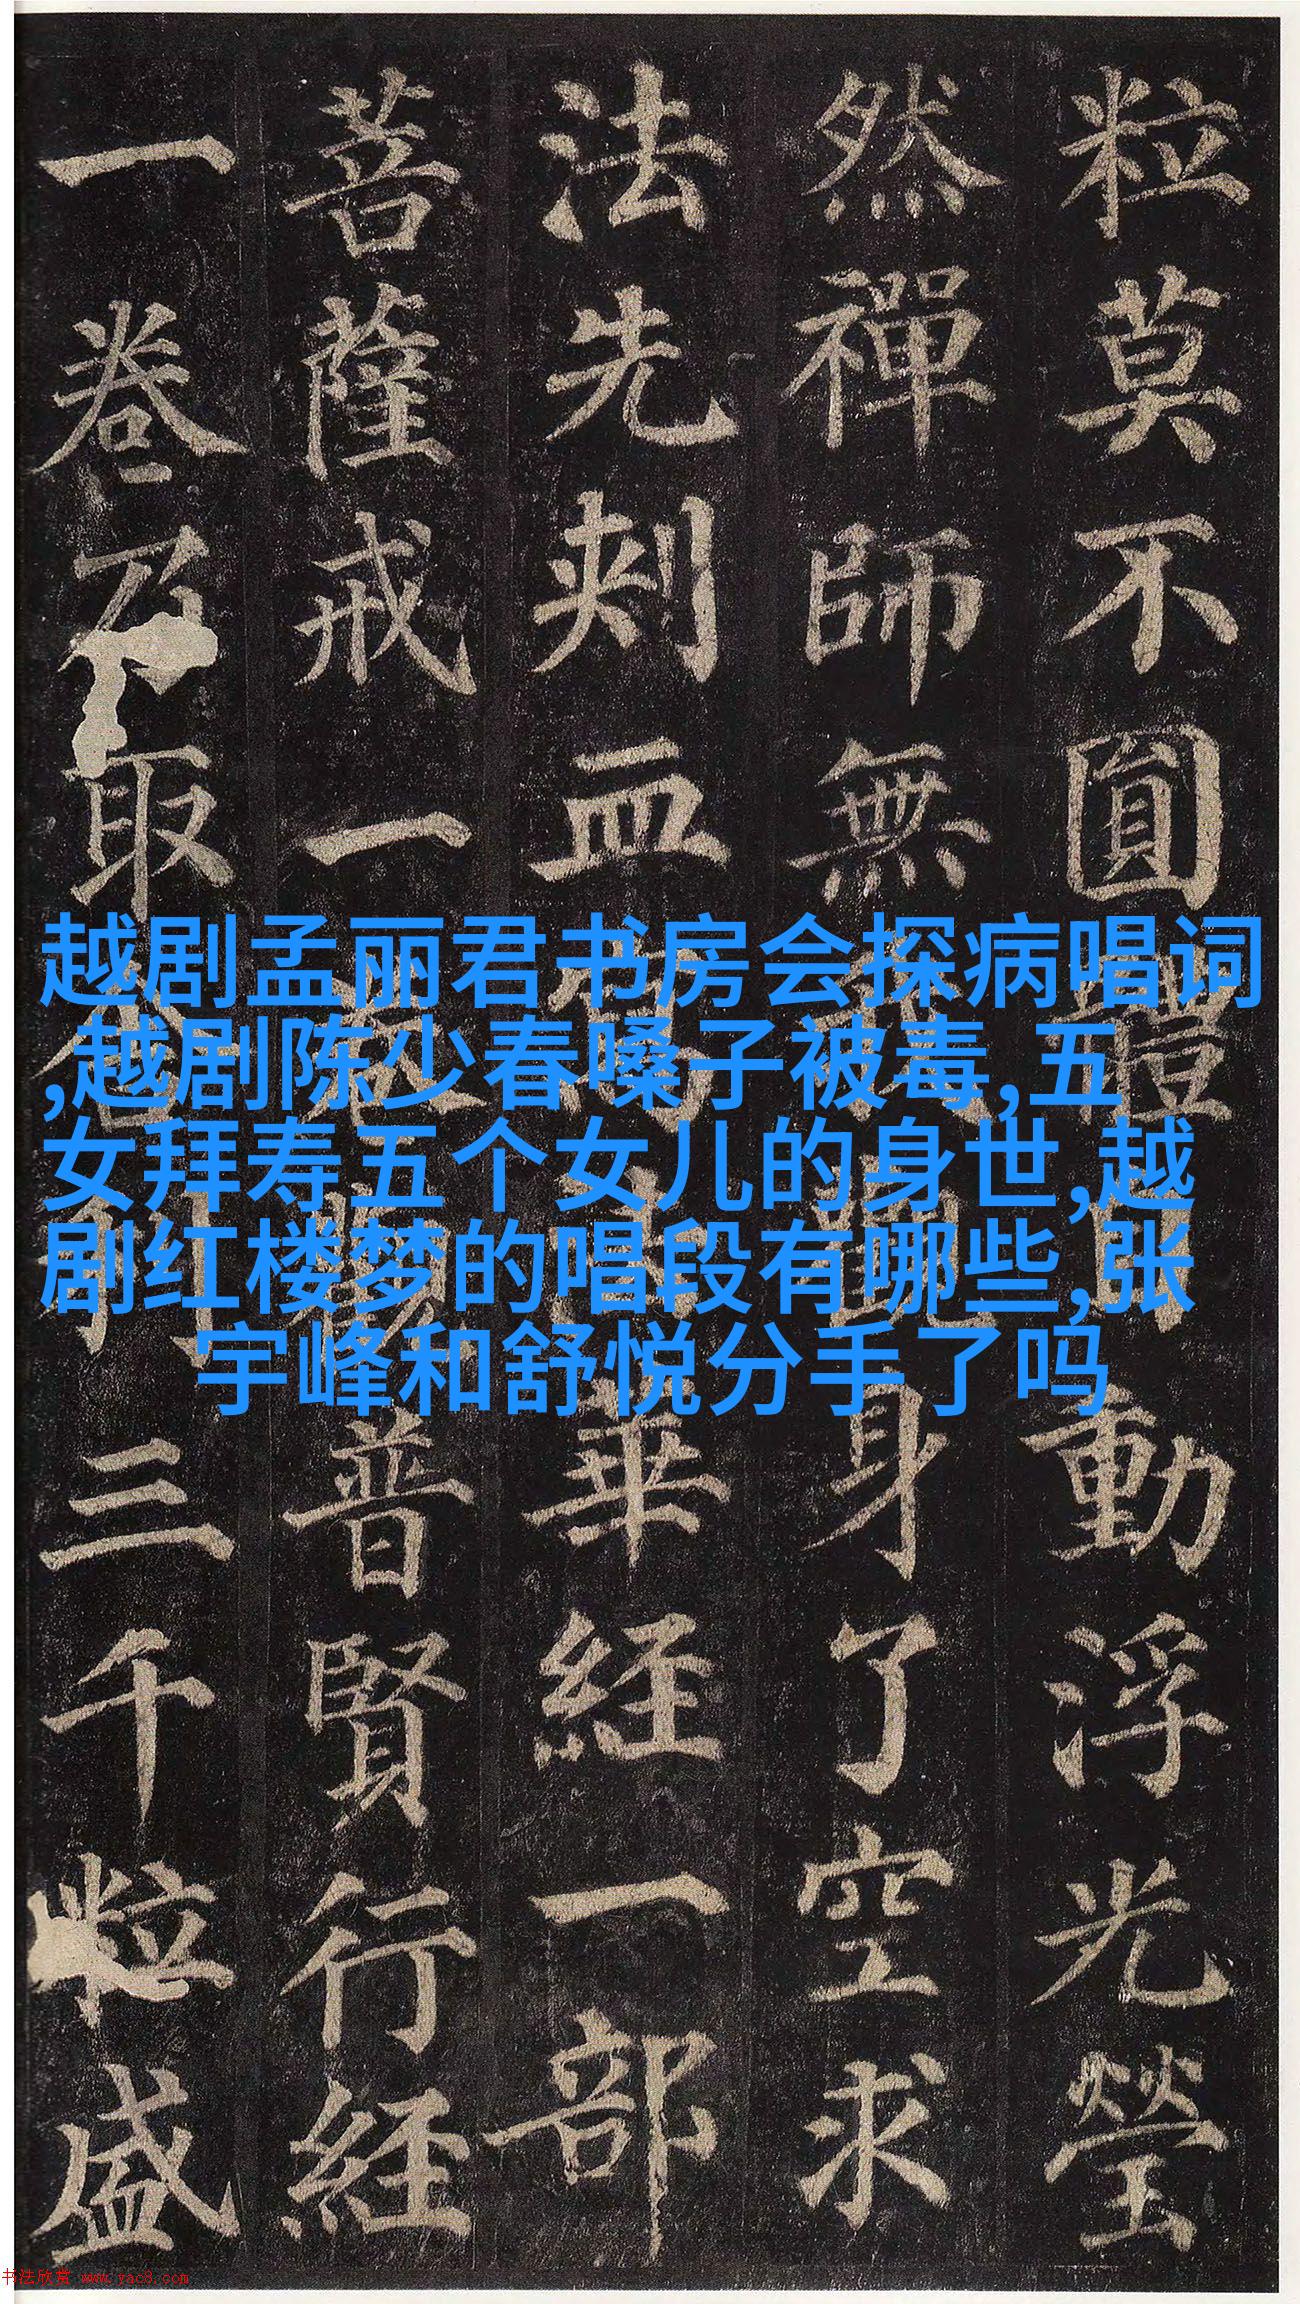 粒莫不圓體自動浮光瑩
然禪師無我觀身了空求
法先刺血寫法華経一部
菩薩戒一卷觀普賢行経
一卷乃取舍利三千粒盛
越剧孟丽君书房会探病唱词
,越剧陈少春嗓子被毒,五
女拜寿五个女儿的身世,越
剧红楼梦的唱段有哪些,张
宇峰和舒悦分手了吗
书法欣赏 www.yac8.com